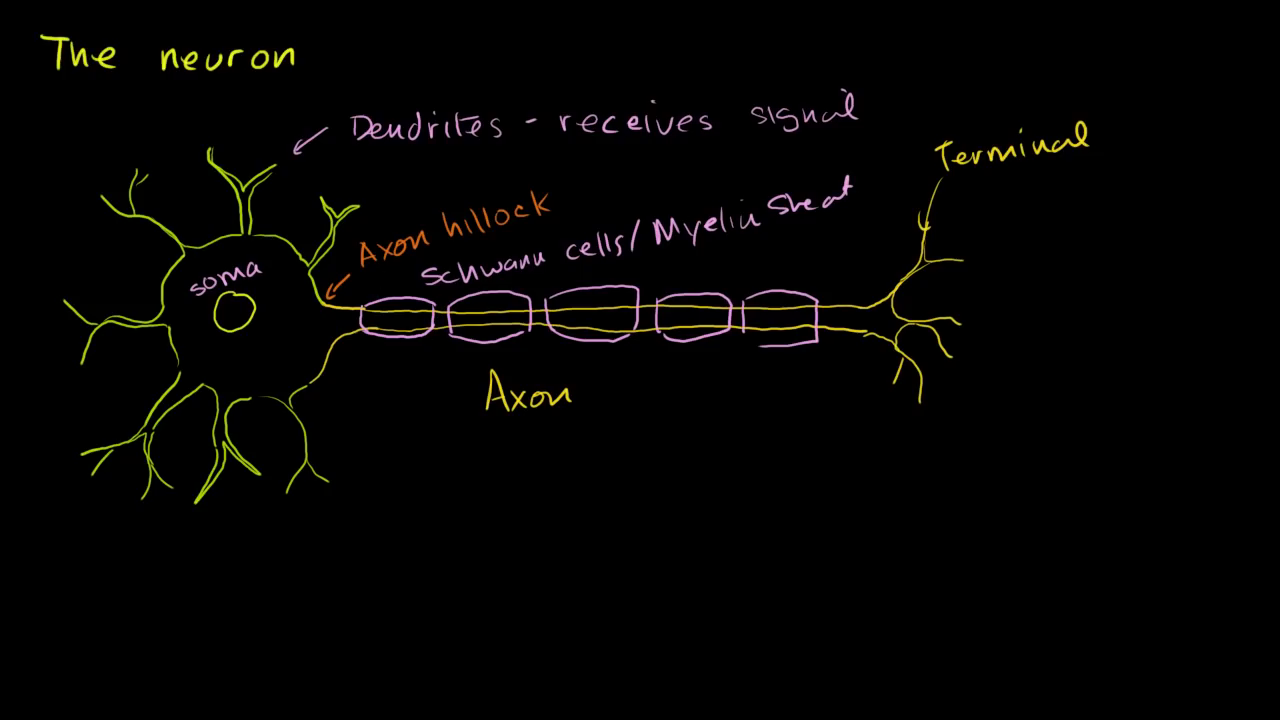 The neuron
Dendrites - receives signal
Terminal
Axon hillock
Schwann cells/Myelin Sheat
soma
Axon